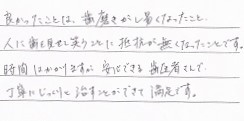 良かったことは、歯磨きがし易くなったこと、
人に歯を見せて笑うことに抵抗が無くなったことです。
時間はかかりますが安心できる歯医者さんで
丁寧にじっくりと治すことができて満足です。